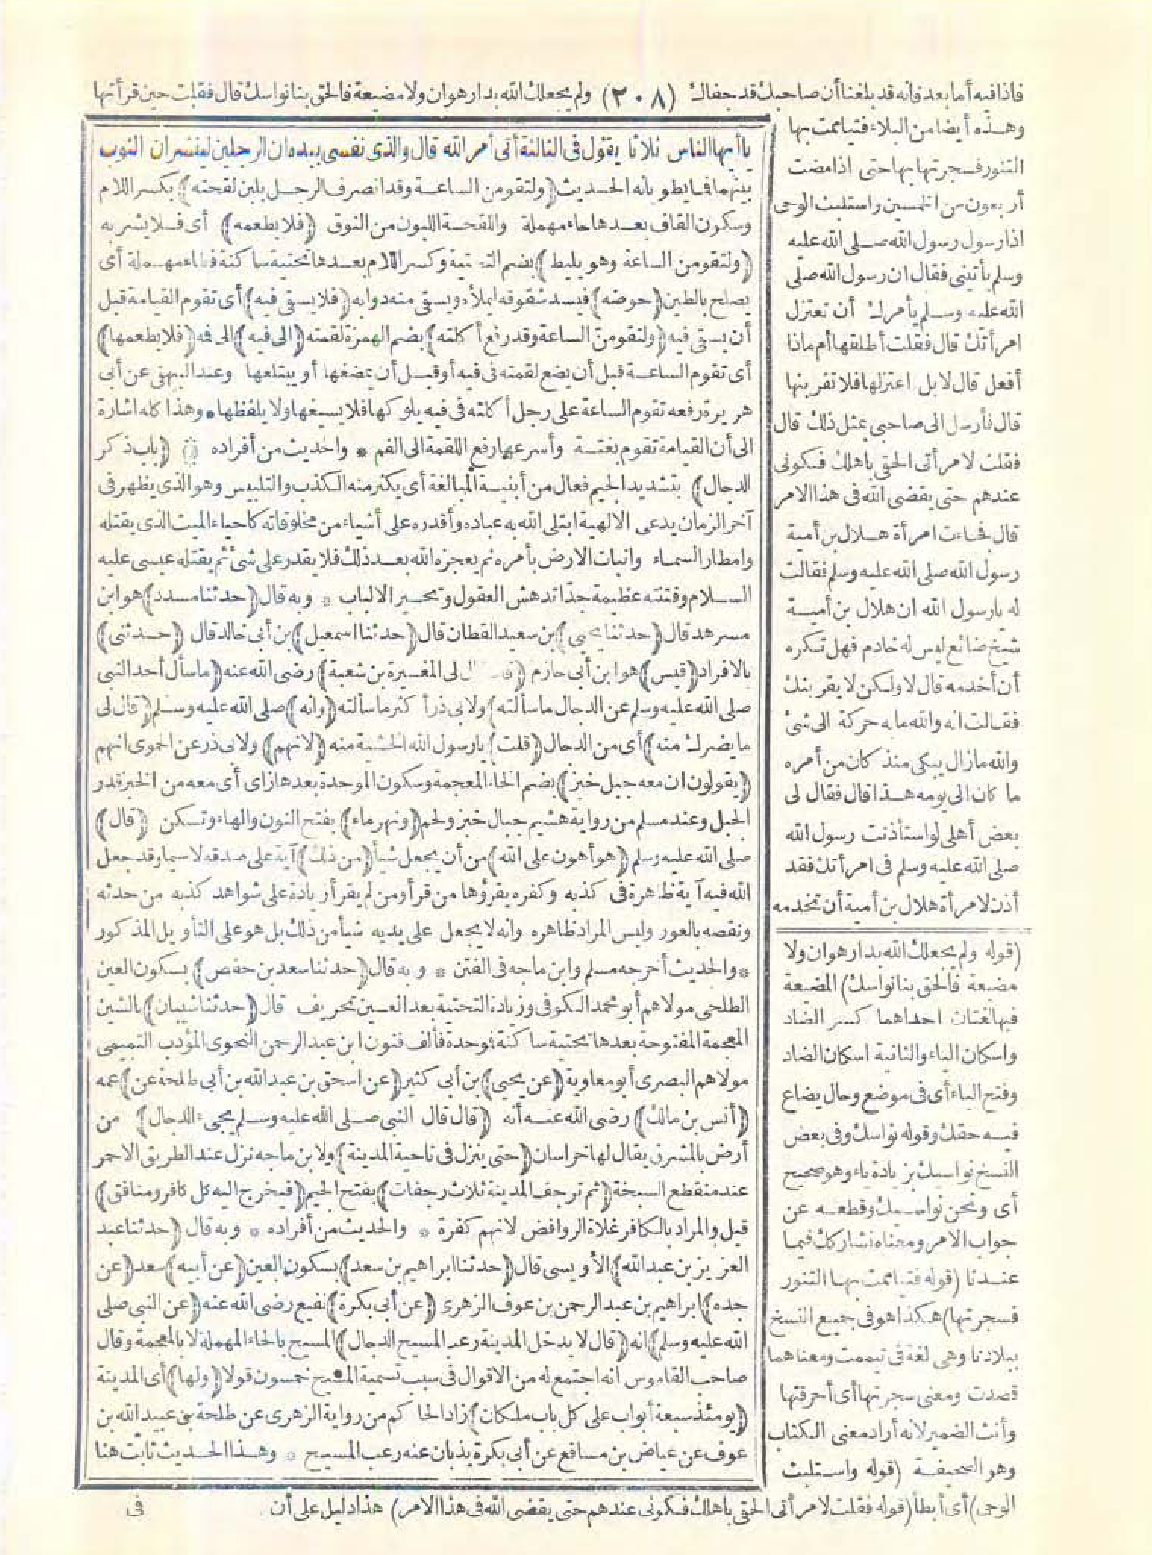 فاذا فيه أما بعد فانه قد بلغنا أن صاحبك قد جفاك (٢٠٨) ولم يجعلك الله بدار هوان ولا مضيعة فالحق بنا نواسك قال فقلت حين قرأتها
وهذه أيضا من البلاء فتياممت بها
التنور فسجرتها بها حتى اذا مضت
أربعون من الخمسين واستلبث الوحى
اذا رسول رسول الله صلى الله عليه
وسلم يأتينى فقال ان رسول الله صلى
الله عليه وسلم يأمرك أن تعتزل
امرأتك قال فقلت أطلقها أم ماذا
أفعل قال لا بل اعتزلها فلا تقربنها
قال فأرسل الى صاحبى بمثل ذلك قال
فقلت لامرأتى الحقى باهلك فكونى
عندهم حتى يقضى الله فى هذا الامر
قال فجاءت امرأة هلال بن أمية
رسول الله صلى الله عليه وسلم فقالت
له يارسول الله ان هلال بن أمية
شيخ ضائع ليس له خادم فهل تكره
أن أخدمه قال لا ولكن لا يقربنك
فقالت انه والله ما به حركة الى شئ
والله مازال يبكى منذ كان من أمره
ما كان الى يومه هذا قال فقال لى
بعض أهلى لو استأذنت رسول الله
صلى الله عليه وسلم فى امرأتك فقد
أذن لامرأة هلال بن أمية أن تخدمه
ياأيها الناس ثلاثا يقول فى الثالثة أتى أمر الله قال والذى نفسى بيده ان الرجلين لينشران الثوب
بينهما فما يطويانه الحديث (ولتقومن الساعة وقد انصرف الرجل بلبن لقحته) بكسر اللام
وسكون القاف بعدها حاء مهملة واللقحة اللبون من النوق (فلا يطعمه) أى فلا يشربه
(ولتقومن الساعة وهو يليط) بضم التحتية وكسر اللام بعدها تحتية ساكنة فطاء مهملة أى
يصلح بالطين (حوضه) فيسد شقوقه ليملأه ويسقى منه دوابه (فلا يسقى فيه) أى تقوم القيامة قبل
أن يسقى فيه (ولتقومن الساعة وقد رفع أكلته) بضم الهمزة لقمته (الى فيه) الى فه (فلا يطعمها)
أى تقوم الساعة قبل أن يضع لقمته فى فيه أو قبل أن يمضغها أو يبتلعها وعند البيهقى عن أبى
هريرة رفعه تقوم الساعة على رجل أكلته فى فيه يلوكها فلا يسيغها ولا يلفظها * وهذا كله اشارة
الى أن القيامة تقوم بغتة وأسرعها رفع اللقمة الى الفم * والحديث من أفراده (باب ذكر
الدجال) بتشديد الجيم فعال من أبنية المبالغة أى يكثر منه الكذب والتلبيس وهو الذى يظهر فى
آخر الزمان يدعى الالهية ابتلى الله به عباده وأقدره على أشياء من مخلوقاته كاحياء الميت الذى يقتله
وامطار السماء وانبات الارض بأمره ثم يعجزه الله بعد ذلك فلا يقدر على شئ ثم يقتله عيسى عليه
السلام وفتنته عظيمة جدا تدهش العقول وتحير الالباب * وبه قال (حدثنا مسدد) هو ابن
مسرهد قال (حدثنا يحيى) بن سعيد القطان قال (حدثنا اسمعيل) بن أبى خالد قال (حدثنى)
بالافراد (قيس) هو ابن أبى حازم (قال لى المغيرة بن شعبة) رضى الله عنه (ما سأل أحد النبى
صلى الله عليه وسلم عن الدجال ما سألته) ولابى ذر أكثر ما سألته (وانه) صلى الله عليه وسلم (قال لى
ما يضرك منه) أى من الدجال (قلت) يارسول الله الخشية منه (لانهم) ولابى ذر عن الحموى انهم
(يقولون ان معه جبل خبز) بضم الخاء المعجمة وسكون الموحدة بعدها زاى أى معه من الخبز قدر
الجبل وعند مسلم من رواية هشيم جبال خبز ولحم (ونهر ماء) بفتح النون والهاء وتسكن (قال)
صلى الله عليه وسلم (هو أهون على الله) من أن يجعل شيأ (من ذلك) آية على صدقه لاسيما وقد جعل
الله فيه آية ظاهرة فى كذبه وكفره يقرؤها من قرأ ومن لم يقرأ زيادة على شواهد كذبه من حدثه
ونقصه بالعور وليس المراد ظاهره وانه لا يجعل على يديه شيأ من ذلك بل هو على التأويل المذكور
* والحديث أخرجه مسلم وابن ماجه فى الفتن * وبه قال (حدثنا سعد بن حفص) بسكون العين
الطلحى مولاهم أبو محمد الكوفى وزيادة التحتية بعد العين تحريف قال (حدثنا شيبان) بالشين
المعجمة المفتوحة بعدها تحتية ساكنة فوحدة فألف فنون ابن عبد الرحمن النحوى المؤدب التميمى
مولاهم البصرى أبو معاوية (عن يحيى) بن أبى كثير (عن اسحق بن عبد الله بن أبى طلحة عن) عمه
(أنس بن مالك) رضى الله عنه أنه (قال قال النبى صلى الله عليه وسلم يجىء الدجال) من
أرض بالمشرق يقال لها خراسان (حتى ينزل فى ناحية المدينة) ولابن ماجه نزل عند الطريق الاحمر
عند منقطع السبخة (ثم ترجف المدينة ثلاث رجفات) بفتح الجيم (فيخرج اليه كل كافر ومنافق)
قيل والمراد بالكافر غلاة الروافض لانهم كفرة * والحديث من أفراده * وبه قال (حدثنا عبد
العزيز بن عبد الله) الأويسى قال (حدثنا ابراهيم بن سعد) بسكون العين (عن أبيه) سعد (عن
جده) ابراهيم بن عبد الرحمن بن عوف الزهرى (عن أبى بكرة) نفيع رضى الله عنه (عن النبى صلى
الله عليه وسلم) انه (قال لا يدخل المدينة رعب المسيح الدجال) المسيح بالحاء المهملة لا بالمعجمة وقال
صاحب القاموس انه اجتمع له من الاقوال فى سبب تسمية المسيح خمسون قولا (ولها) أى المدينة
(يومئذ سبعة أبواب على كل باب ملكان) زاد الحاكم من رواية الزهرى عن طلحة بن عبيد الله بن
عوف عن عياض بن مسافع عن أبى بكرة يذبان عنه رعب المسيح * وهذا الحديث ثابت هنا
فى
(قوله ولم يجعلك الله بدار هوان ولا
مضيعة فالحق بنا نواسك) المضيعة
فيها لغتان احداهما كسر الضاد
واسكان الياء والثانية اسكان الضاد
وفتح الياء أى فى موضع وحال يضاع
فيه حقك وقوله نواسك وفى بعض
النسخ نواسيك بزيادة ياء وهو صحيح
أى ونحن نواسيك وقطعه عن
جواب الامر ومعناه نشاركك فيما
عندنا (قوله فتياممت بها التنور
فسجرتها) هكذا هو فى جميع النسخ
ببلادنا وهى لغة فى تيممت ومعناهما
قصدت ومعنى سجرتها أى أحرقتها
وأنث الضمير لانه أراد معنى الكتاب
وهو الصحيفة (قوله واستلبث
الوحى) أى أبطأ (قوله فقلت لامرأتى الحقى باهلك فكونى عندهم حتى يقضى الله فى هذا الامر) هذا دليل على أن